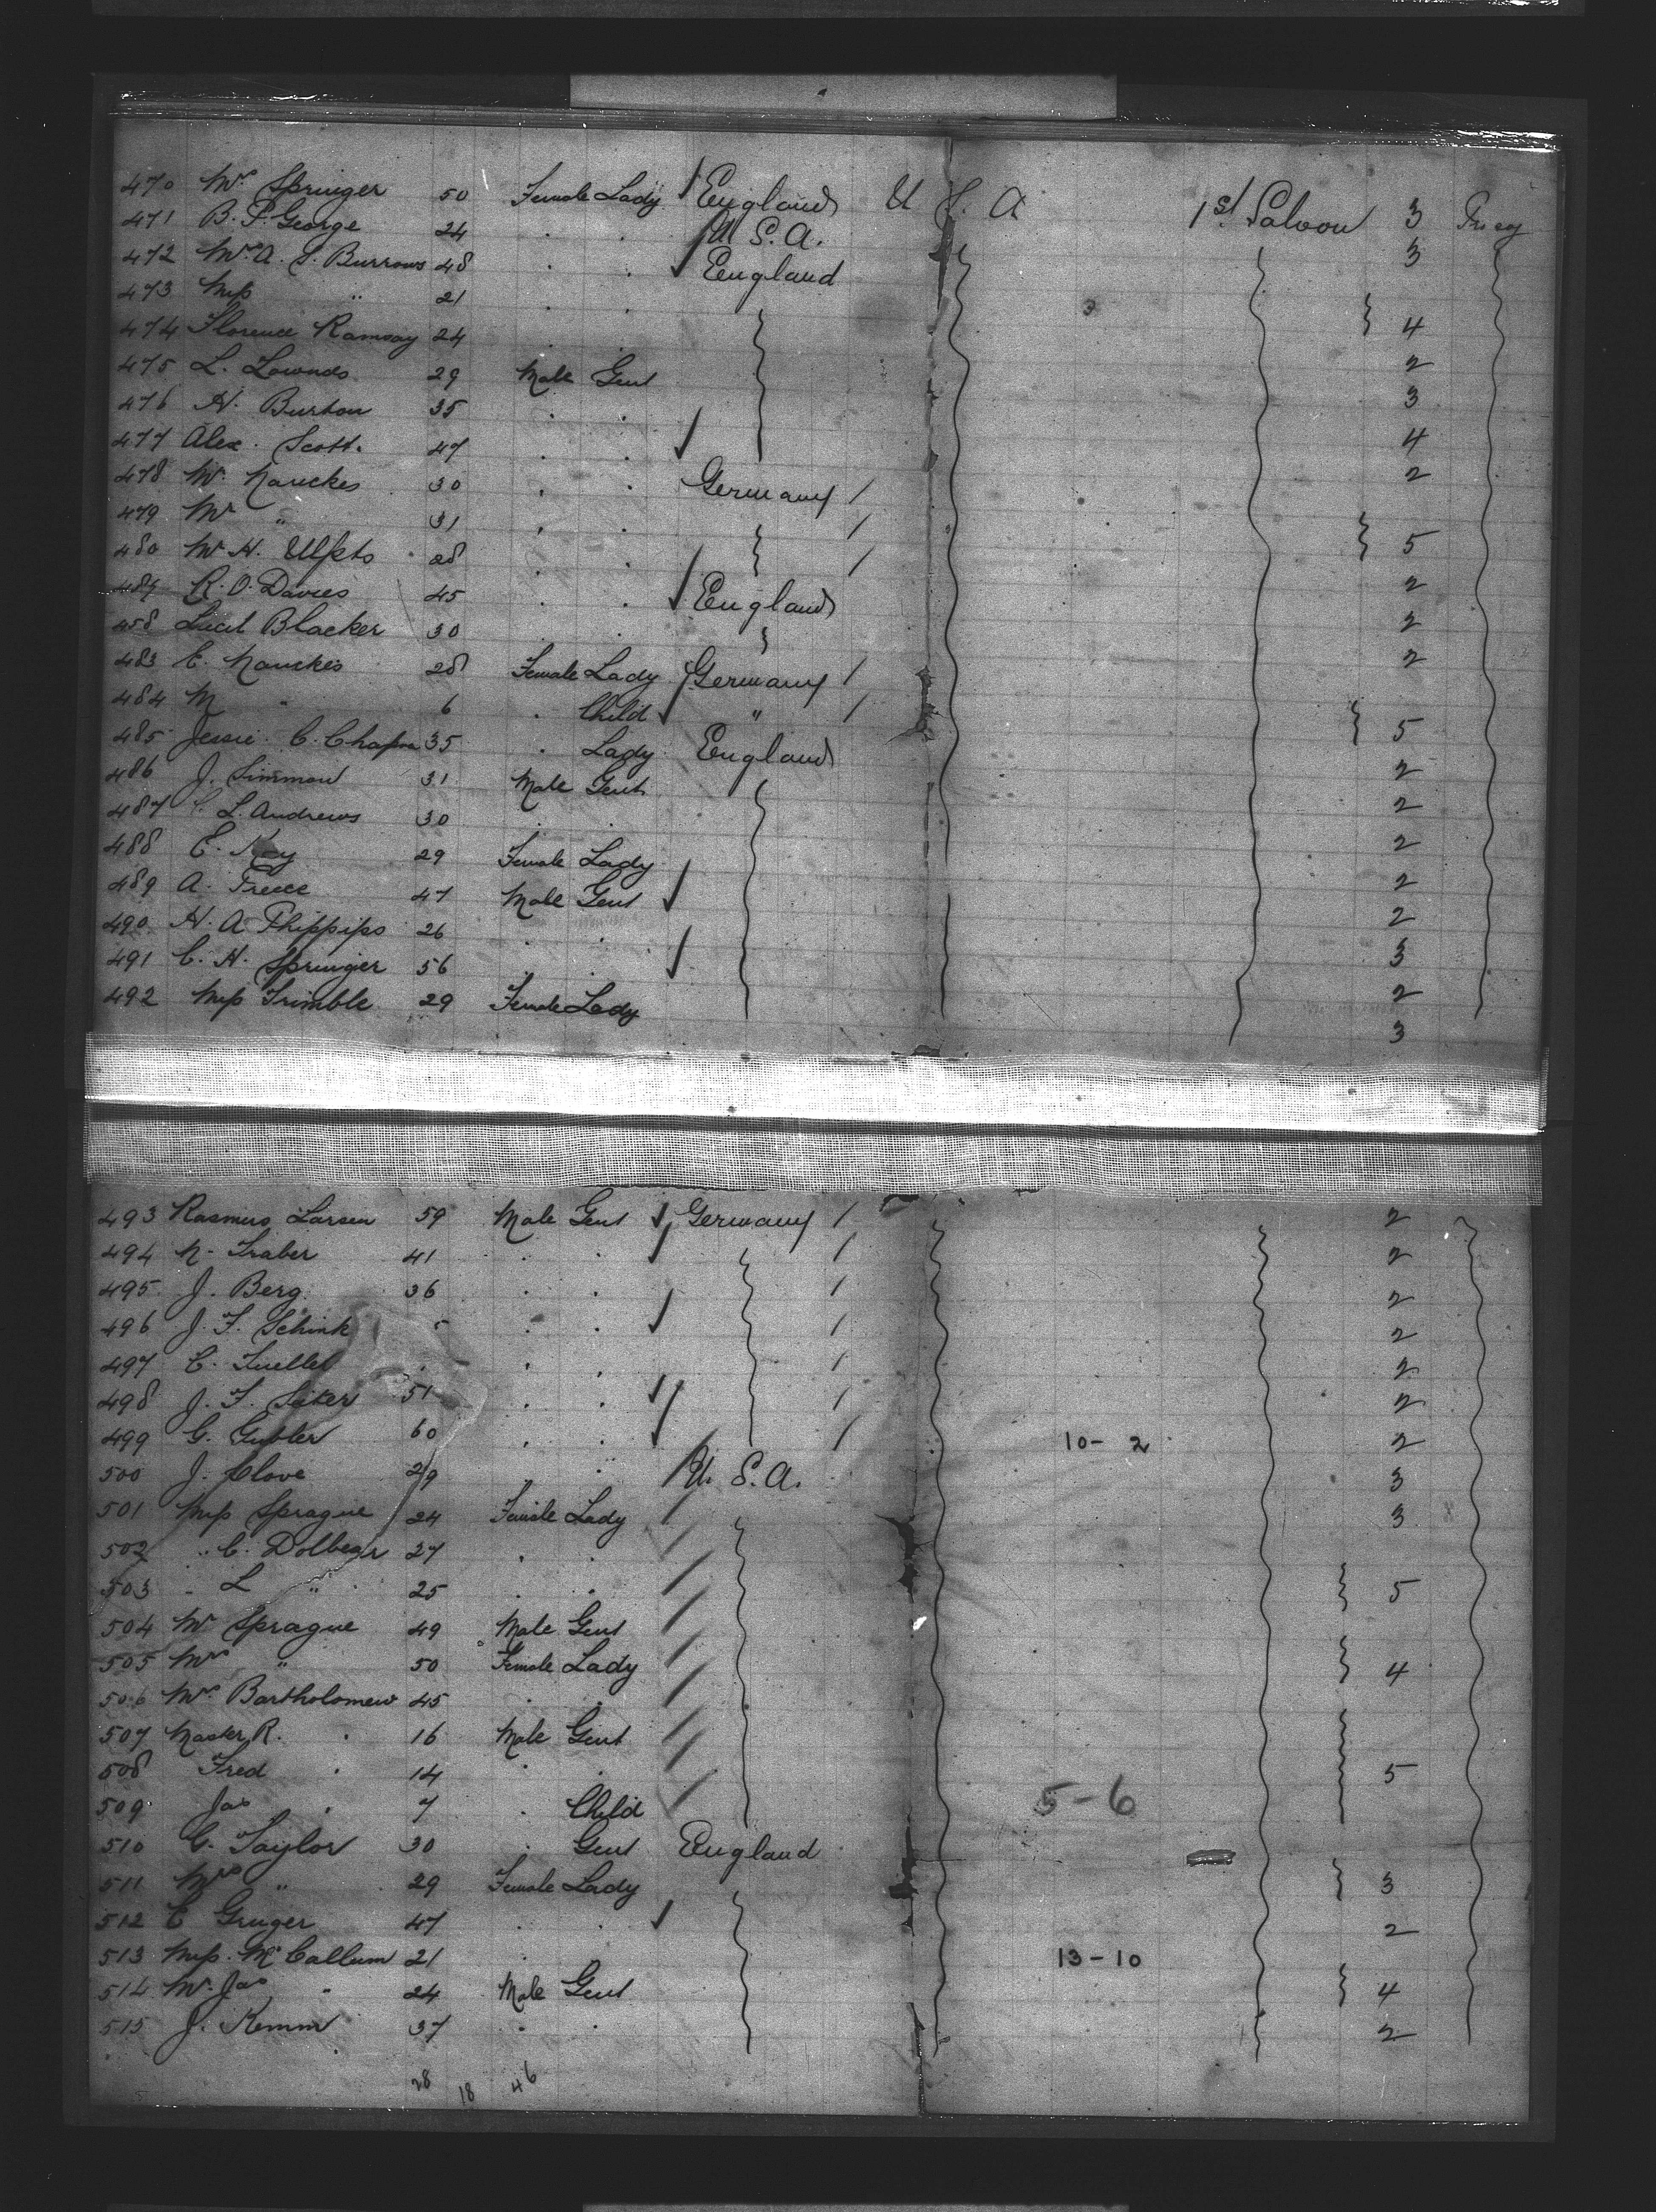 470 Mrs Springer 50 Female Lady England U S. A 1st Saloon 3
471 B. P. George 24 U S. A. 3
472 Mrs A. S. Burrows 48 England
473 Miss " 21 4
474 Florence Ramsay 24 2
475 L. Lownds 29 Male Gent 3
476 H. Burton 35 4
477 Alex. Scott. 47 2
478 Mr. Nauckes 30 Germany
479 Mr " 31 5
480 W. H. 28 2
R. O. Davies 45 England 2
Blacker 30 " 2
483 E. Nauckes 28 Female Lady Germany
484 M " 6 Child " 5
485 Jessie C. 35 Lady England 2
486 J. Simmon 31 Male Gent 2
487 L. Andrews 30 2
488 E. 29 Female Lady 2
489 A. Treece 47 Male Gent 2
490 H. A. Phippips 26 3
491 C. H. Springer 56 2
492 Miss Trimble 29 Female Lady 3
493 Rasmus Larsen 59 Male Gent Germany 2
494 N. Traber 41 2
495. J. Berg. 36 2
496 J. F. Schink 2
497 C. 2
498 J. F. 51 2
499 G. Gubler 60 10- 2 2
500 J. Clove 29 U. S. A. 3
501 Miss Sprague 24 Female Lady 3
502 " C. Dolbear 27
503 " L " 25 5
504 Mr Sprague 49 Male Gent
505 Mrs " 50 Female Lady 4
506 Mrs Bartholomew 45
507 Master R. " 16 Male Gent
508 Fred " 14 5
509 Jas " 7 Child 5-6
510 G. Taylor 30 Gent England
511 Mrs " 29 Female Lady 3
512 E Gruger 47 2
513 Miss. McCallum 21 13-10
514 Mr. Jas " 24 Male Gent 4
515 J. Remm 37 2
28 18 46